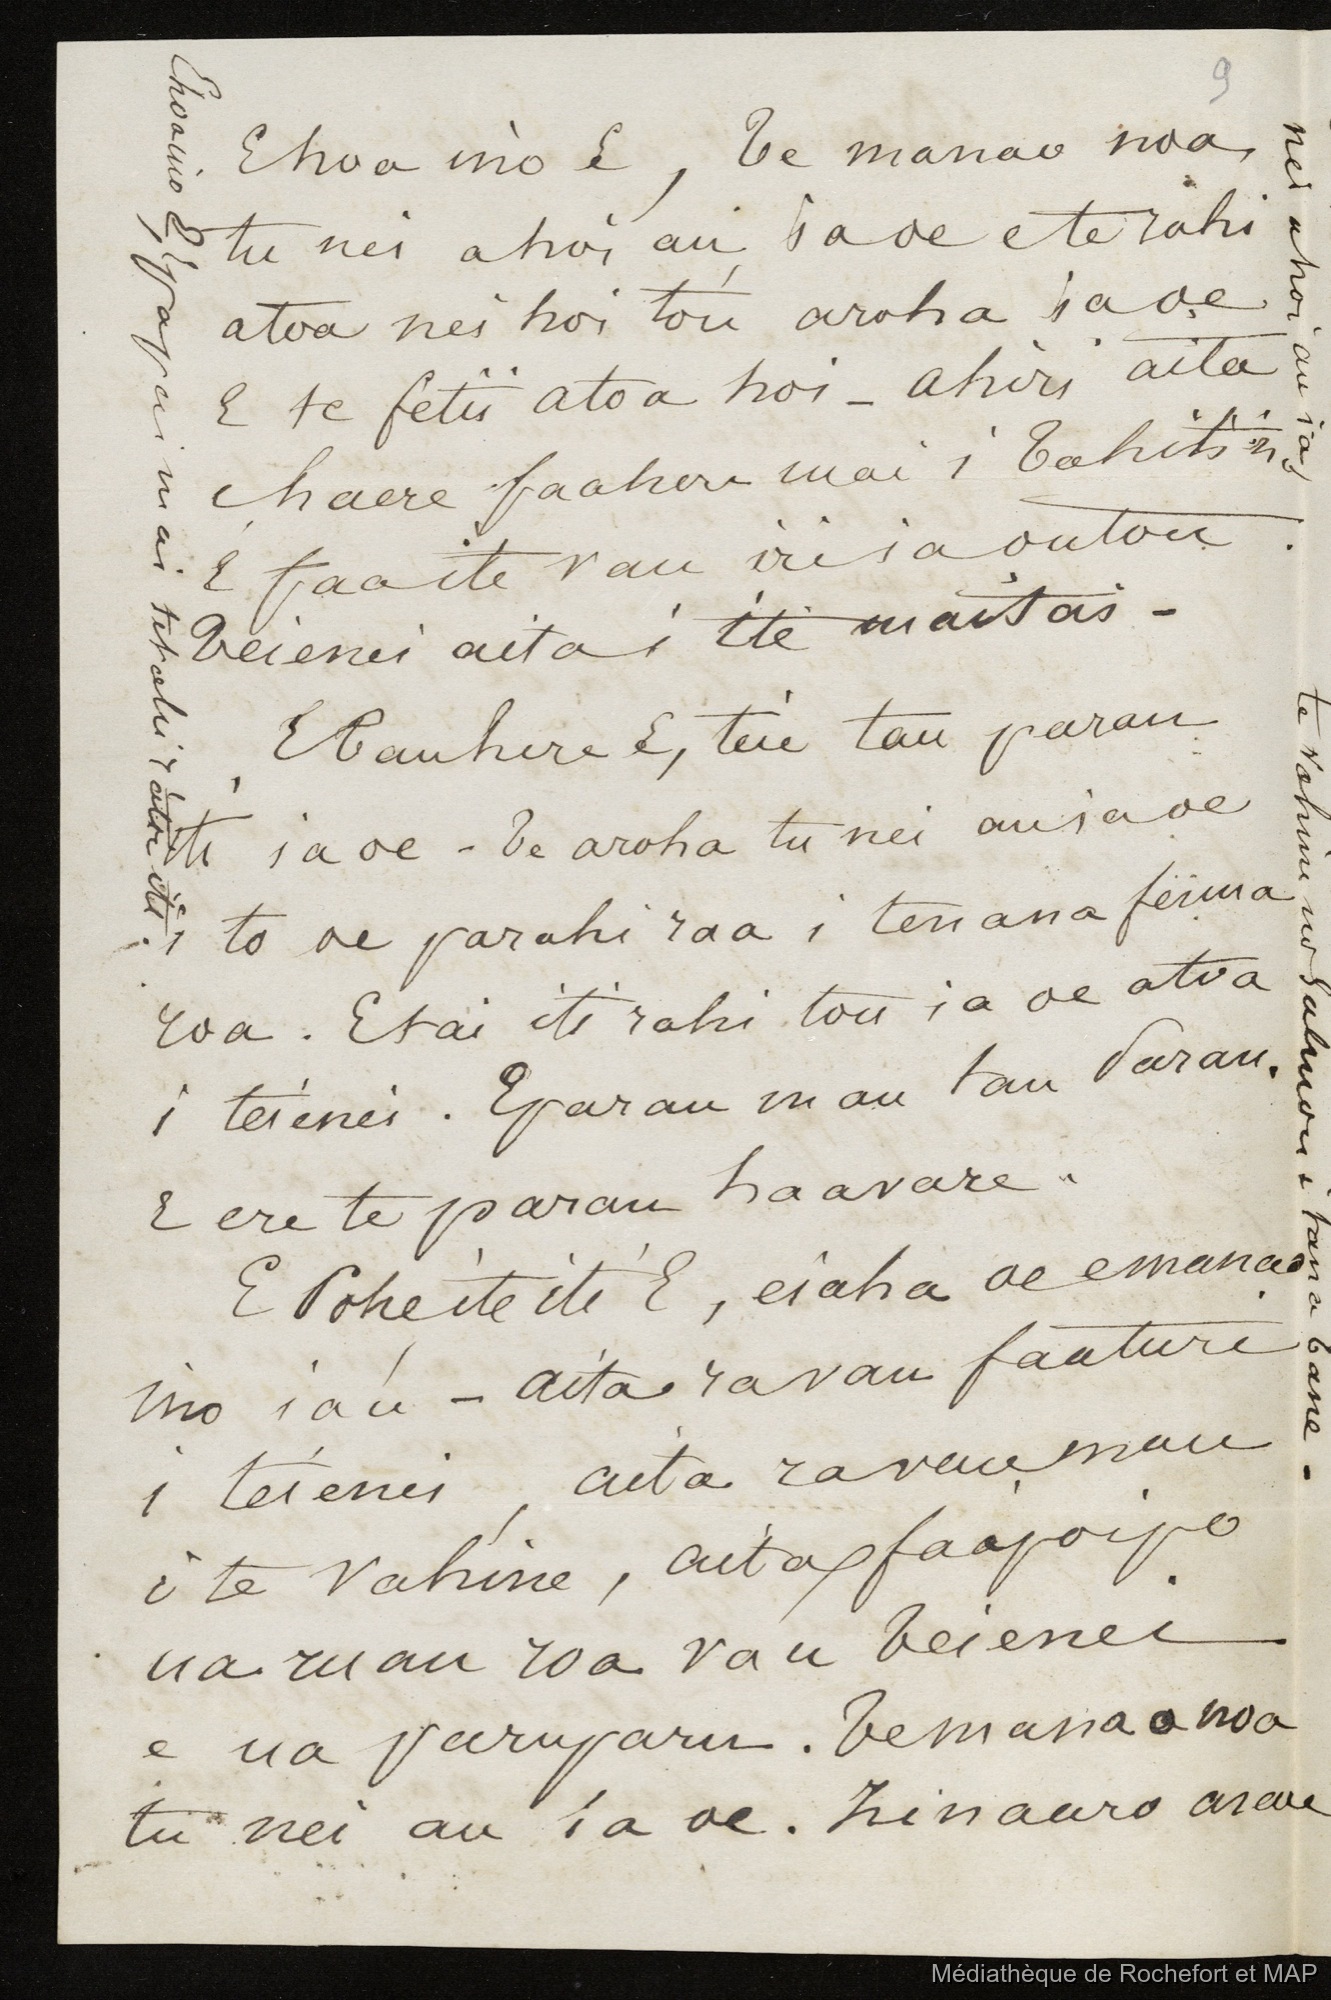 9
E hoa ino E, Te manao noa
tu nei ahoi au ia oe e te rahi
atoa nei hoi tóu aroha ia oe
E te fetii atoa hoi - ahiri aita
e haere faahou mai i Tahiti nei
E faaite vau iri ia outou.
Teienei aita i ite maitai -
E Tauhere E, teie tau parau
iti ia oe - Te aroha tu nei au ia oe
i to oe parahi raa i tenana fenua
roa. E tai iti rahi tou ia oe atoa
i teienei. E parau mau tau Parau.
E ere te parau haavare.
E Poheiteiti E, eiaha oe e manao
ino iaú - aita ra vau faaturi
i teienei, aita ra vau mau
i te Vahine, aita faaipoipo
ua ruau roa vau Teienei
e ua paruparu. Te manao noa
tu nei au ia oe. Hinaaro
E hoa ino E, E papai mai te tahi rata iti.
nei ahoi au ia
te vahine no Salmon e tana Tane -
Médiathèque de Rochefort et MAP